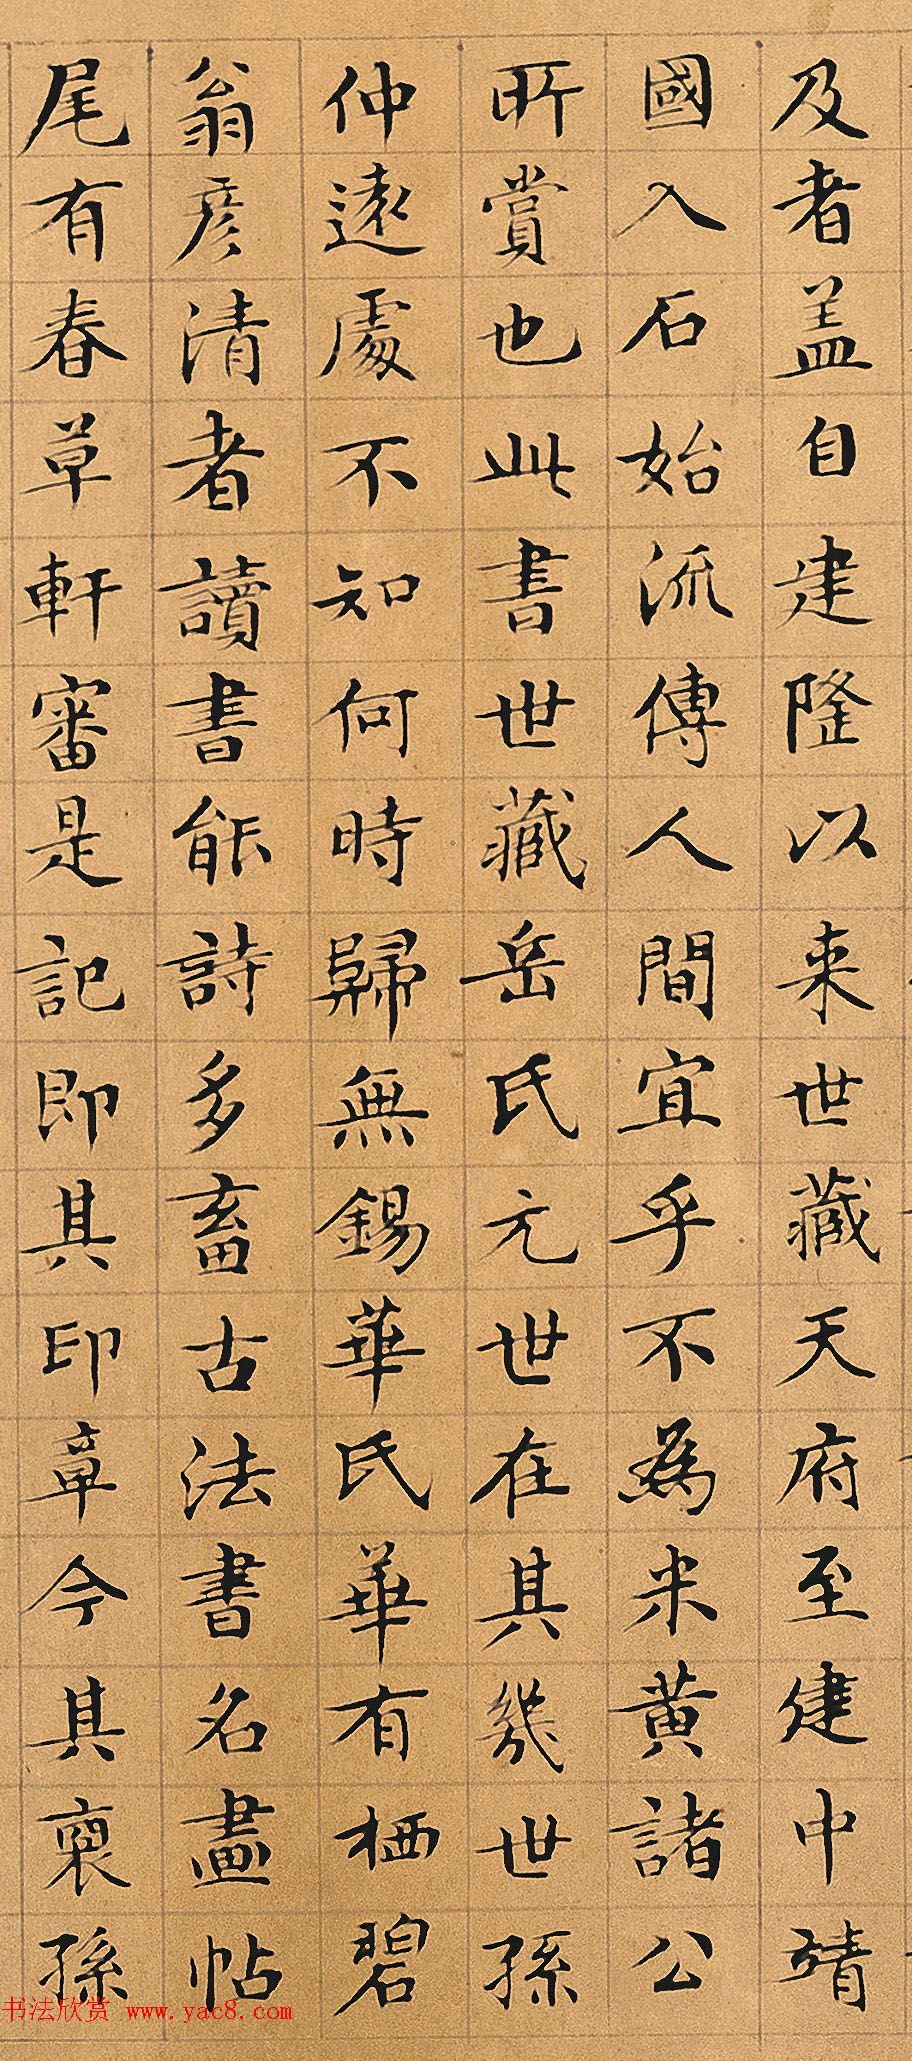 及者盖自建隆以来世藏天府至建中靖
國入石始流傳人間宜乎不為米黄諸公
所賞也此書世藏岳氏元世在其幾世孫
仲遠處不知何時歸無錫華氏華有栖碧
翁彦清者讀書能詩多畜古法書名畫帖
尾有春草軒審是記即其印章今其裔孫
书法欣赏 www.yac8.com